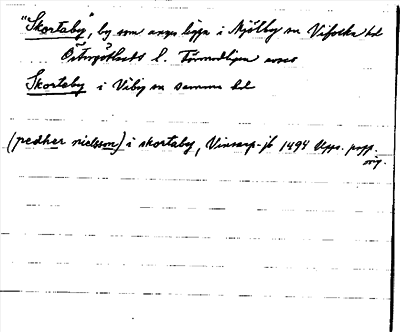 "Skortaby", by som anges ligga i Mjölby sn Vifolka hd
Östergötlands l. Förmodligen avses
Skortaby i Viby sn samma hd
(pedher nielsson) i skortaby, Vinsarp-jb 1494 Upps. papp.
orig.